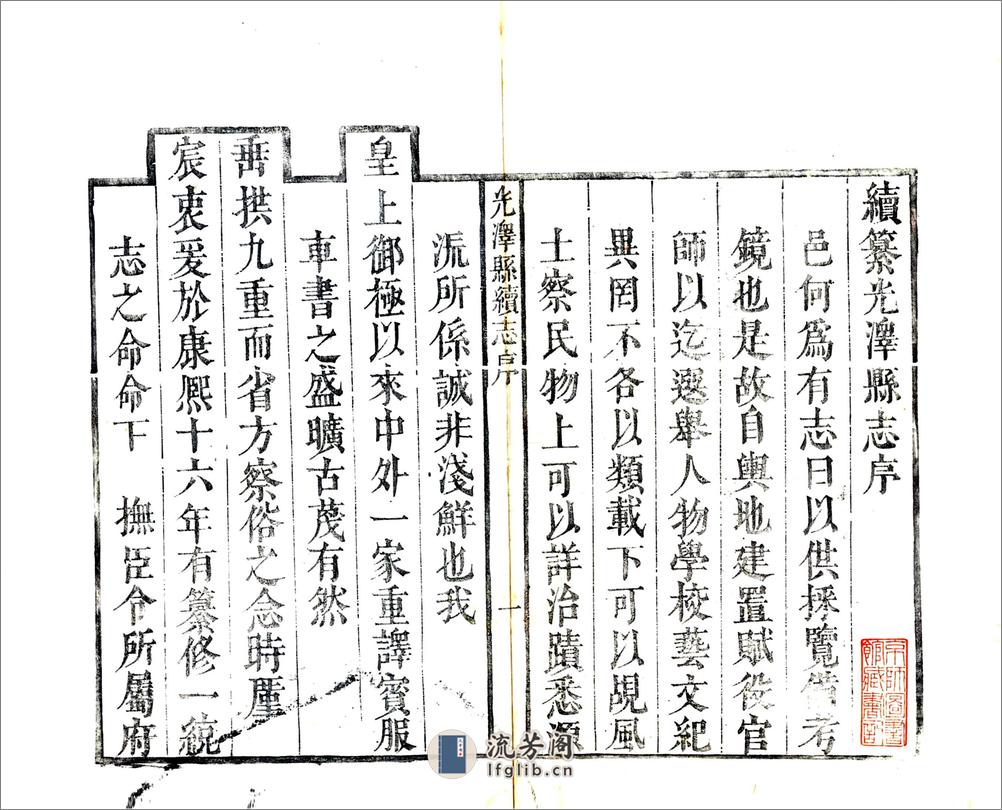 續纂光澤縣志序
邑何爲有志曰以供採覽備考
鏡也是故自輿地建置賦役官
師以迄選舉人物學校藝文紀
異罔不各以類載下可以覘風
土察民物上可以詳治蹟悉源
光澤縣續志序
一
流所係誠非淺鮮也我
皇上御極以來中外一家重譯賓服
車書之盛曠古茂有然
垂拱九重而省方察俗之念時厪
宸衷爰於康熙十六年有纂修一統
志之命命下 撫臣令所屬府
京師圖書
館藏書印
流芳阁
lfglib.cn